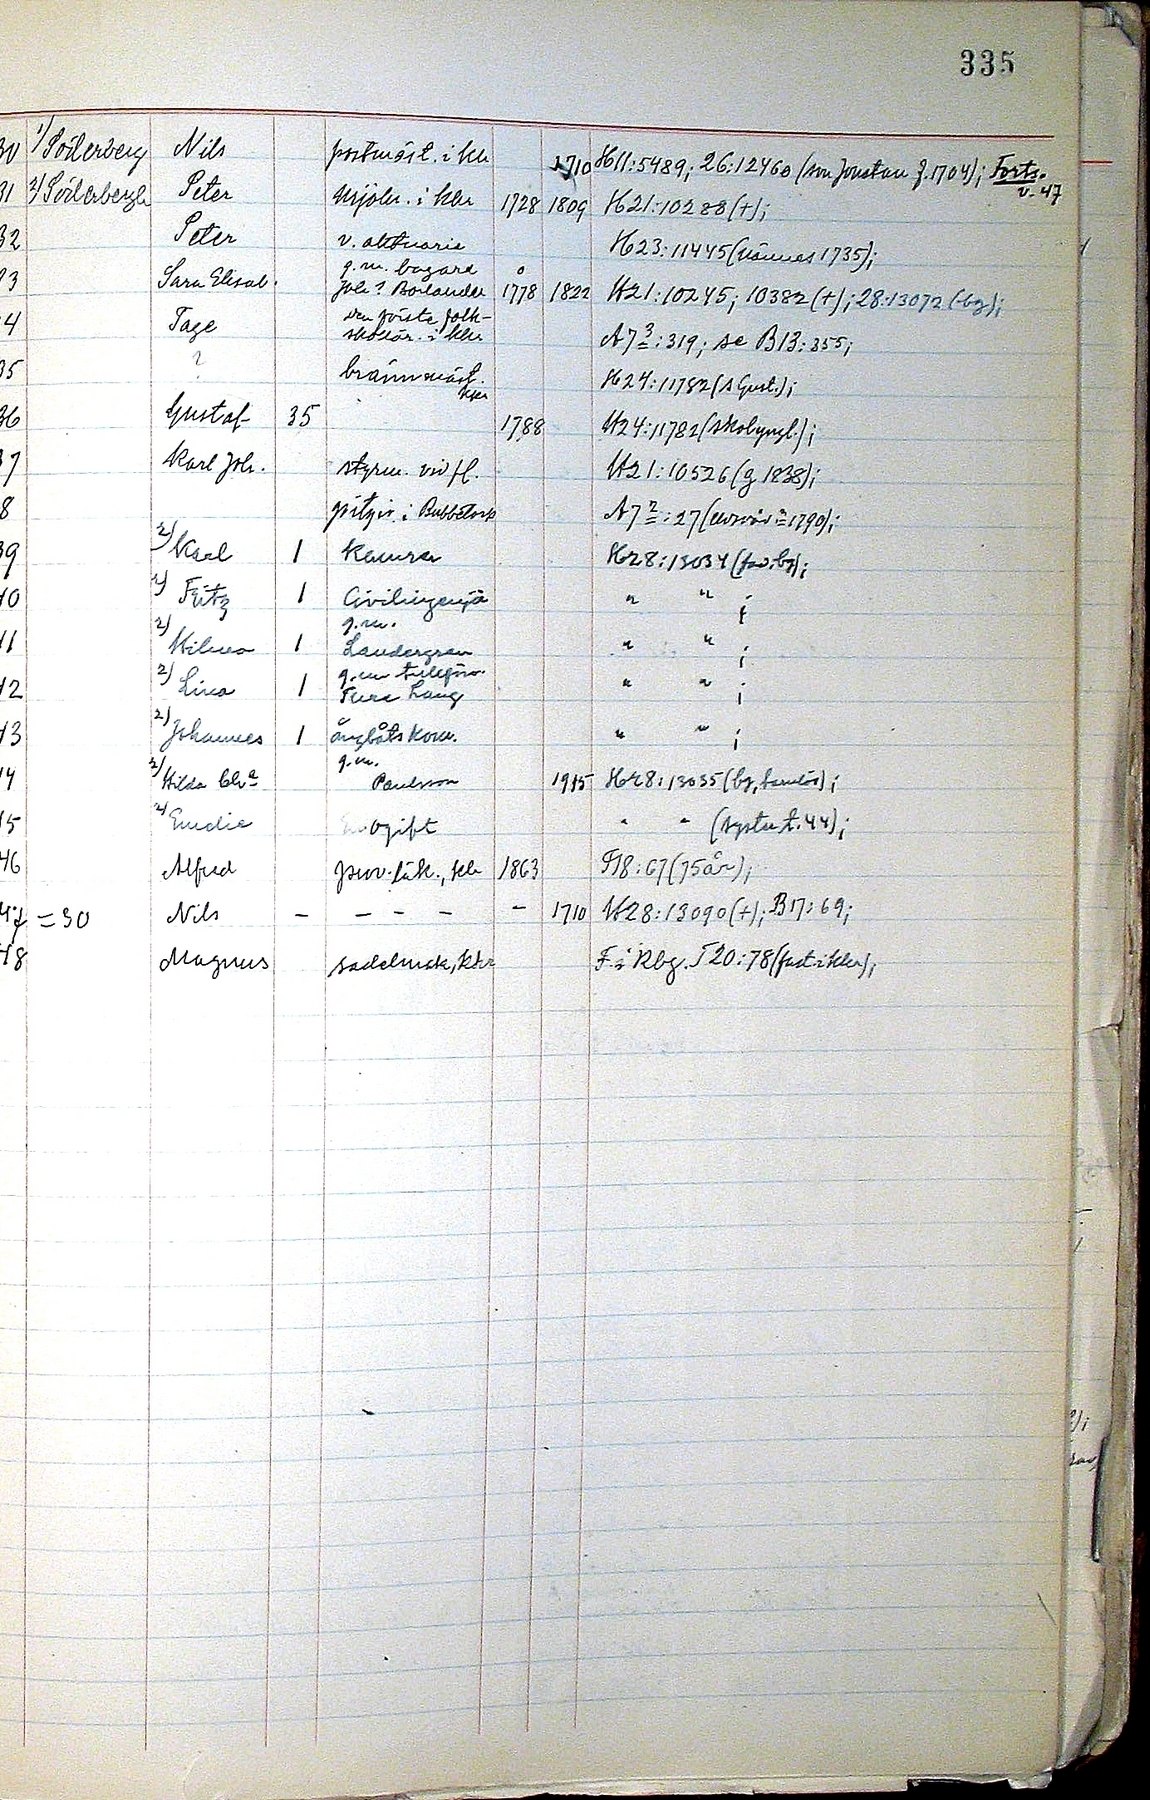 335
30 1) Söderberg Nils postmäst. i Klr 1710 H11:5489; 26:12460 (son Jonatan f. 1704); Forts. v. 47
31 2) Söderbergh Peter mjöln. i Klr 1728 1809 H21:10288 (+);
32 Peter v. aktuarie H23:11445 (nämnes 1735);
33 Sara Elisab. g.m. bagare Joh? Bolander 1778 1822 H21:10245; 10382 (+); 28:13072 (bg);
34 Tage den förste folkskollär. i Klr A7 3:319; se B13:355;
35 ? brännmäst. Klr H24:11782 (s Gust.);
36 Gustaf 35 1788 H24:11782 (skolyngl.);
37 Karl Joh. styrm. vid fl. H21:10526 (g 1838);
38 i Bubbetorp A7 2:27 (1790);
39 2) Karl 1 Kamrer H28:13034 (fam.bg);
40 2) Fritz 1 Civilingenjör " " ;
41 2) Hilma 1 g.m. Landergren " " ;
42 2) Lina 1 g.m. Ture Lang " " ;
43 2) Johannes 1 ångbåtskom. " " ;
44 2) Hilda Ch:a g.m. Paulsson 1915 H28:13035 (bg, barnlös);
45 2) Emelie ogift " " (syster t. 44);
46 Alfred prov.läk., Klr 1863 F18:67 (75 år);
47 = 30 Nils – – – – – 1710 H28:13090 (+); B17:69;
48 Magnus sadelmak, Klr F. i Rbg. I 20:78 (fast. i Klr);